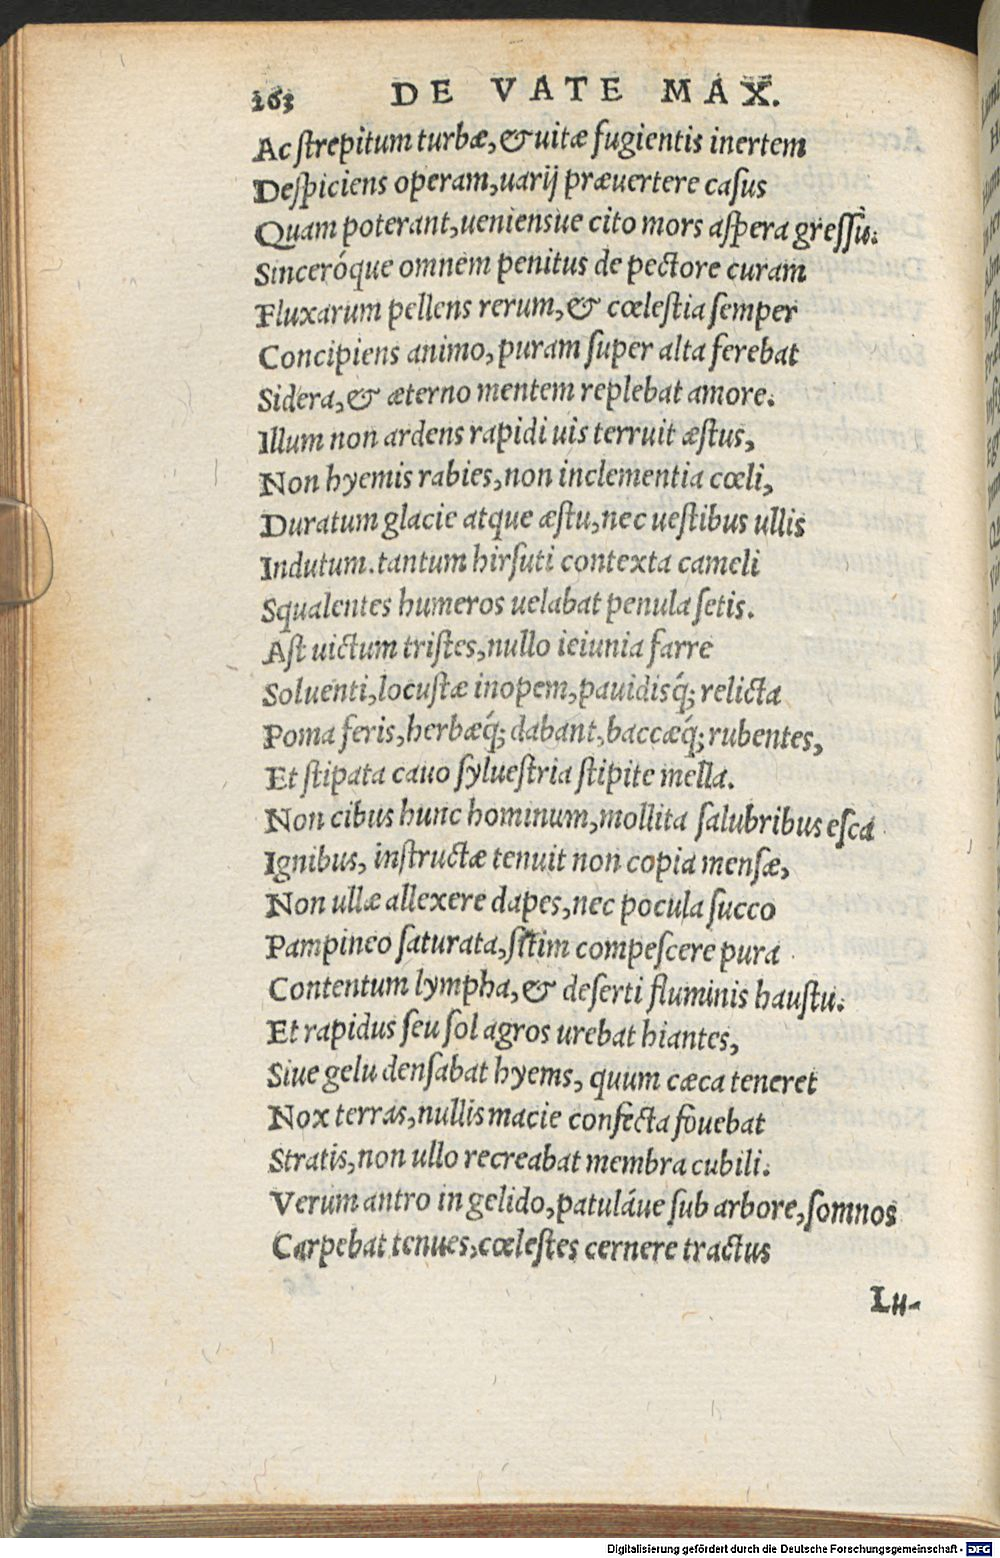 263 DE VATE MAX.
Ac ſtrepitum turbæ, & uitæ fugientis inertem
Deſpiciens operam, uarij præuertere caſus
Quam poterant, ueniensue cito mors aſpera greſſu.
Sinceróque omnem penitus de pectore curam
Fluxarum pellens rerum, & cœleſtia ſemper
Concipiens animo, puram ſuper alta ferebat
Sidera, & æterno mentem replebat amore.
Illum non ardens rapidi uis terruit æſtus,
Non hyemis rabies, non inclementia cœli,
Duratum glacie atque æſtu, nec ueſtibus ullis
Indutum. tantum hirſuti contexta cameli
Squalentes humeros uelabat penula ſetis.
Aſt uictum triſtes, nullo ieiunia farre
Soluenti, locuſtæ inopem, pauidisq́; relicta
Poma feris, herbæq́; dabant, baccæq́; rubentes,
Et ſtipata cauo ſylueſtria ſtipite mella.
Non cibus hunc hominum, mollita ſalubribus eſca
Ignibus, inſtructæ tenuit non copia menſæ,
Non ullæ allexere dapes, nec pocula ſucco
Pampineo ſaturata, ſitim compeſcere pura
Contentum lympha, & deſerti fluminis hauſtu.
Et rapidus ſeu ſol agros urebat hiantes,
Siue gelu denſabat hyems, quum cæca teneret
Nox terras, nullis macie confecta fouebat
Stratis, non ullo recreabat membra cubili.
Verum antro in gelido, patuláue ſub arbore, ſomnos
Carpebat tenues, cœleſtes cernere tractus
Lu-
Digitalisierung gefördert durch die Deutsche Forschungsgemeinschaft - DFG